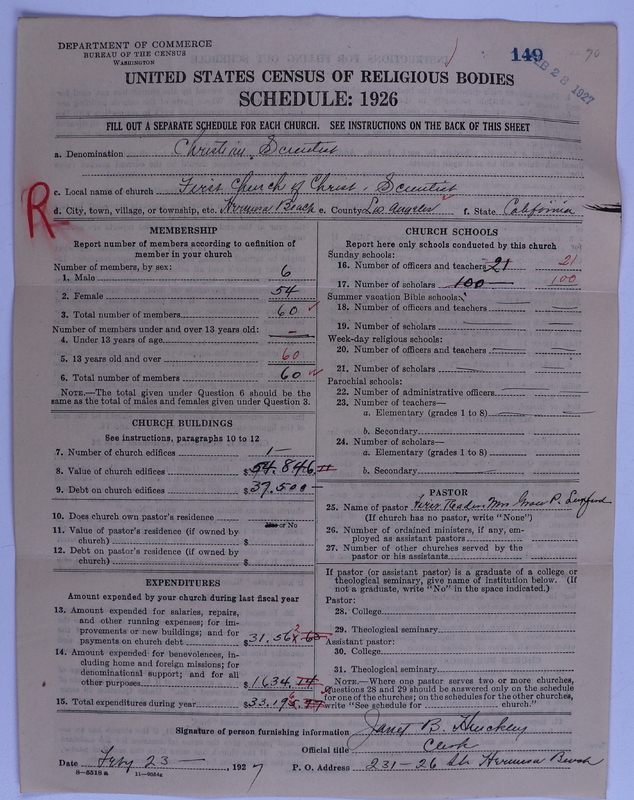 DEPARTMENT OF COMMERCE
BUREAU OF THE CENSUS
WASHINGTON
149
70
FEB 28 1927
UNITED STATES CENSUS OF RELIGIOUS BODIES
SCHEDULE: 1926
FILL OUT A SEPARATE SCHEDULE FOR EACH CHURCH. SEE INSTRUCTIONS ON THE BACK OF THIS SHEET
a. Denomination Christian, Scientist
c. Local name of church First Church of Christ, Scientist
R
d. City, town, village, or township, etc. Hermosa Beach e. County Los Angeles f. State California
MEMBERSHIP
Report number of members according to definition of
member in your church
Number of members, by sex:
1. Male 6
2. Female 54
3. Total number of members 60
Number of members under and over 13 years old:
4. Under 13 years of age —
5. 13 years old and over 60
6. Total number of members 60
NOTE.—The total given under Question 6 should be the
same as the total of males and females given under Question 3.
CHURCH BUILDINGS
See instructions, paragraphs 10 to 12
7. Number of church edifices 1—
8. Value of church edifices $54,846.11
9. Debt on church edifices $37,500—
10. Does church own pastor's residence Yes or No
11. Value of pastor's residence (if owned by
church) $
12. Debt on pastor's residence (if owned by
church) $
EXPENDITURES
Amount expended by your church during last fiscal year
13. Amount expended for salaries, repairs,
and other running expenses; for im-
provements or new buildings; and for
payments on church debt $31,56
14. Amount expended for benevolences, in-
cluding home and foreign missions; for
denominational support; and for all
other purposes $1634.14
15. Total expenditures during year $33,19
CHURCH SCHOOLS
Report here only schools conducted by this church
Sunday schools:
16. Number of officers and teachers 21 21
17. Number of scholars 100— 100
Summer vacation Bible schools:
18. Number of officers and teachers
19. Number of scholars
Week-day religious schools:
20. Number of officers and teachers
21. Number of scholars
Parochial schools:
22. Number of administrative officers
23. Number of teachers—
a. Elementary (grades 1 to 8)
b. Secondary
24. Number of scholars—
a. Elementary (grades 1 to 8)
b. Secondary
PASTOR
25. Name of pastor First Reader Mrs Grace P.
(If church has no pastor, write "None")
26. Number of ordained ministers, if any, em-
ployed as assistant pastors
27. Number of other churches served by the
pastor or his assistants
If pastor (or assistant pastor) is a graduate of a college or
theological seminary, give name of institution below. (If
not a graduate, write "No" in the space indicated.)
Pastor:
28. College
29. Theological seminary
Assistant pastor:
30. College
31. Theological seminary
NOTE.—Where one pastor serves two or more churches,
Questions 28 and 29 should be answered only on the schedule
for one of the churches; on the schedules for the other churches,
write "See schedule for church."
Signature of person furnishing information Janet B. Huckey
Official title Clerk
Date Feby 23 — , 1927 P. O. Address 231-26 St. Hermosa Beach
8—5518 a 11—9054a